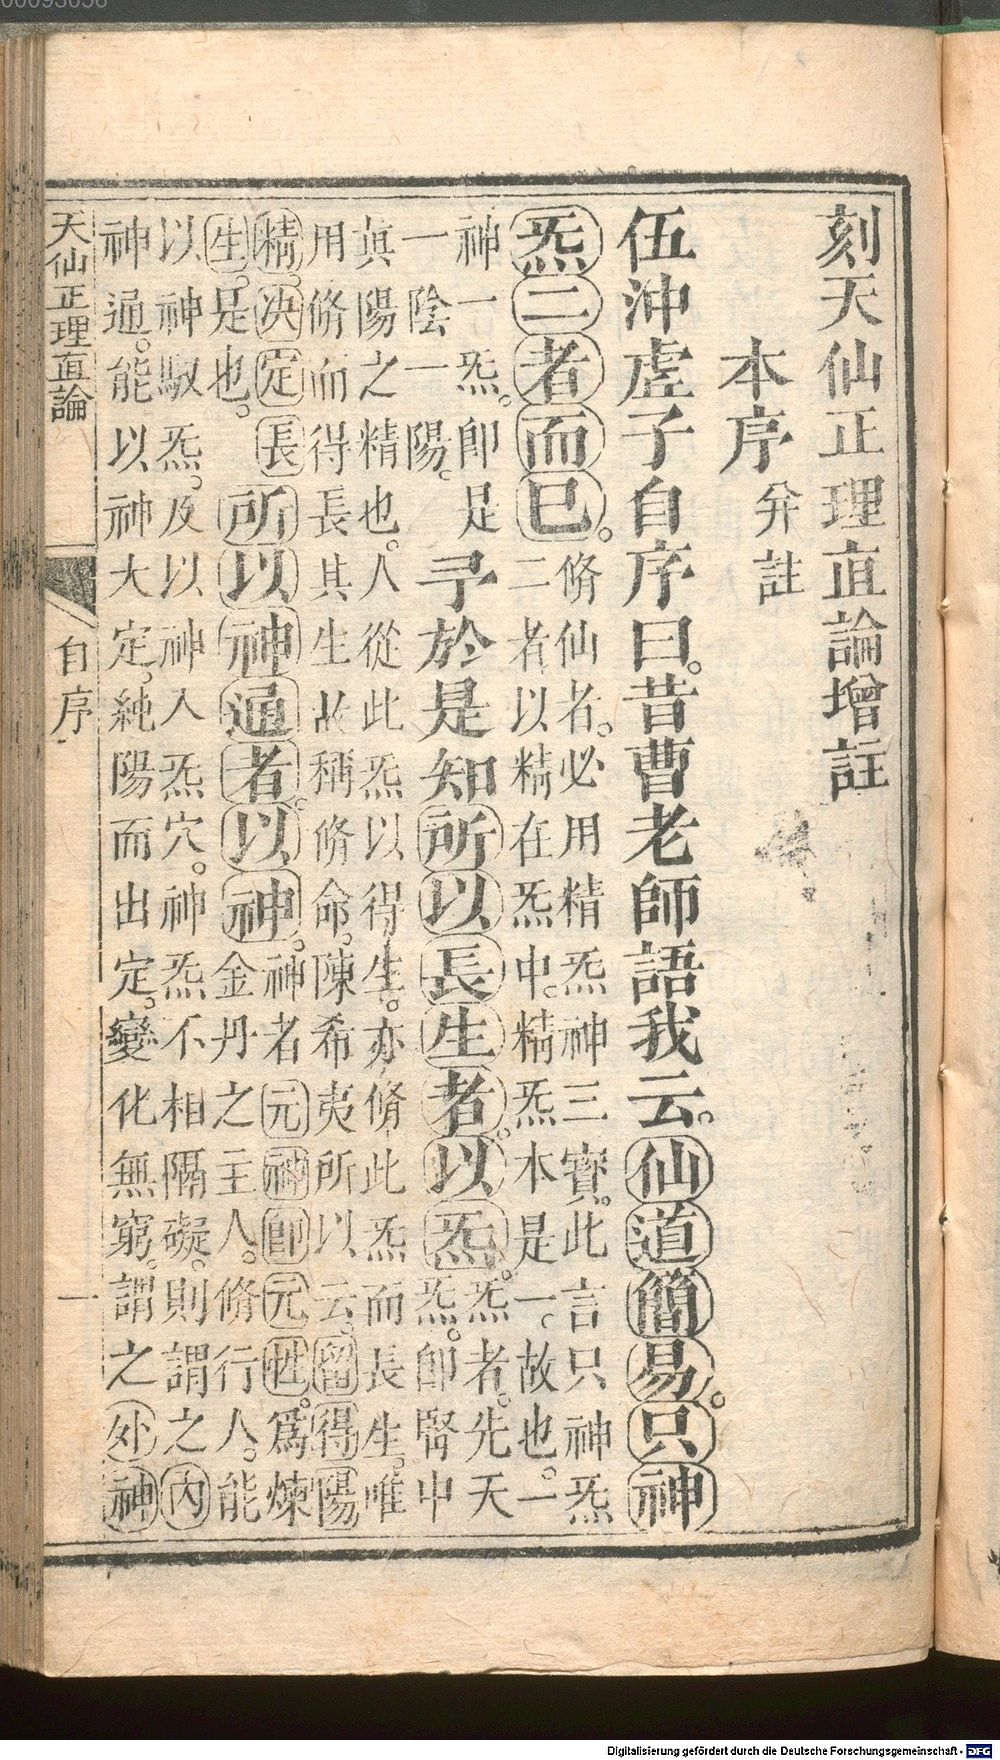 刻天仙正理直論增註
本序 弁註
伍沖虛子自序曰。昔曹老師語我云。仙道簡易。只神
炁二者而已。
脩仙者。必用精炁神三寶。此言只神炁
二者以精在炁中。精炁本是一。故也。一
神一炁。即是
一陰一陽。
予於是知所以長生者。以炁。
炁者。先天
炁。即腎中
眞陽之精也。人從此炁以得生。亦脩此炁而長生。唯
用脩而得長其生。故稱脩命。陳希夷所以云。留得陽
精。决定長
生。是也。
所以神通者。以神。
神者元神即元性。爲煉
金丹之主人。脩行人。能
以神馭炁。及以神入炁穴。神炁不相隔礙。則謂之內
神通。能以神大定。純陽而出定。變化無窮。謂之外神
天仙正理直論 自序 一
00093056
Digitalisierung gefördert durch die Deutsche Forschungsgemeinschaft - DFG